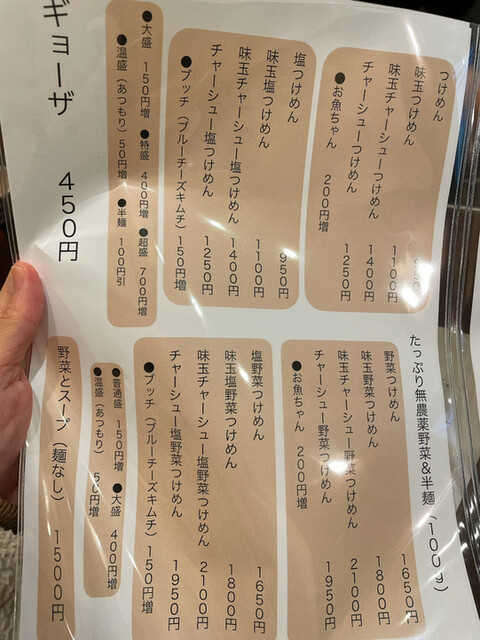 つけめん
味玉つけめん　１１００円
味玉チャーシューつけめん　１４００円
チャーシューつけめん　１２５０円
●お魚ちゃん　２００円増
塩つけめん　９５０円
味玉塩つけめん　１１００円
味玉チャーシュー塩つけめん　１４００円
チャーシュー塩つけめん　１２５０円
●ブッチ（ブルーチーズキムチ）１５０円増
●大盛　１５０円増　●特盛　４００円増　●超盛　７００円増
●温盛（あつもり）５０円増　●半麺　１００円引
ギョーザ　４５０円
たっぷり無農薬野菜＆半麺（１００ｇ）
野菜つけめん　１６５０円
味玉野菜つけめん　１８００円
味玉チャーシュー野菜つけめん　２１００円
チャーシュー野菜つけめん　１９５０円
●お魚ちゃん　２００円増
塩野菜つけめん　１６５０円
味玉塩野菜つけめん　１８００円
味玉チャーシュー塩野菜つけめん　２１００円
チャーシュー塩野菜つけめん　１９５０円
●ブッチ（ブルーチーズキムチ）１５０円増
●普通盛　１５０円増　●大盛　４００円増
●温盛（あつもり）　５０円増
野菜とスープ（麺なし）　１５００円